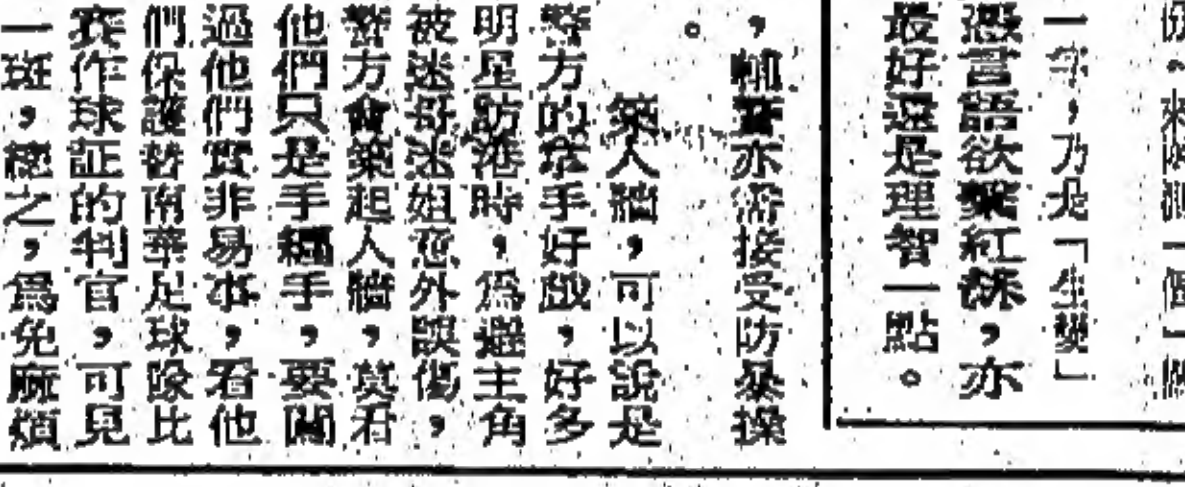 一年，乃是「生
言語欲紅，亦
最好還是理智一點。
，輔警亦需接受防暴操
。
築人牆，可以說是
警方的拿手好戲，好多
明星訪港時，爲避主角
被迷哥迷姐意外誤傷，
警方會築起人牆，莫君
他們只是手綑手，要闖
過他們實非易事，看他
們保護替南華足球隊比
賽作球証的判官，可見
一斑，總之，爲免麻煩